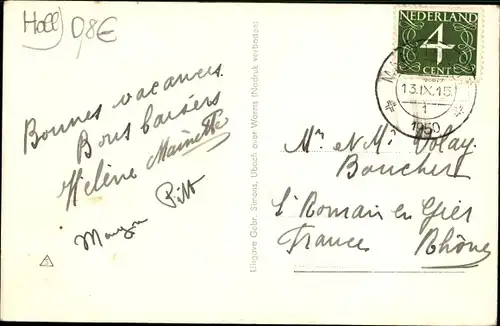 Holl 0,8€
Bonnes vacances
Bons baisers
Hélène Mainette
Pitt
Uitgave Gebr. Simons, Ubach over Worms (Nadruk verboden)
NEDERLAND
4
CENT
13.IX.15
1
1950
Mr et Me Volay
Boucher
St Romain en Gier
France Rhône